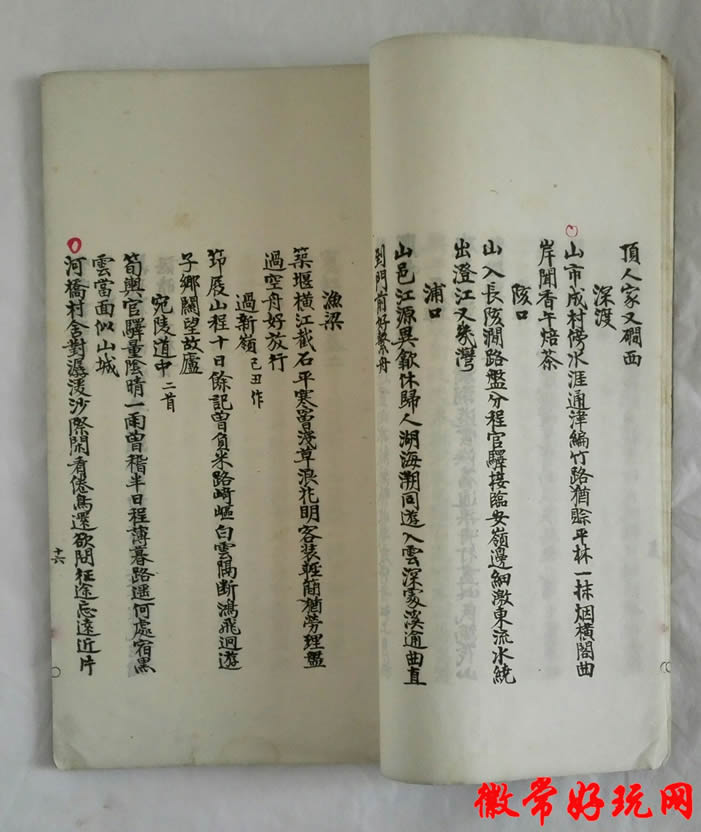 頂人家又磵面
深渡
山市成村傍水涯通津編竹路猶賒平林一抹烟橫閣曲
岸聞香午焙茶
陔口
山入長陔澗路盤分程官驛接臨安嶺邊細激東流水繞
出澄江又幾灣
浦口
山邑江源異歙休歸人湖海溯同遊入雲深處溪通曲直
到門前好繫舟
漁梁
築堰橫江截石平寒曾淺草浪花明客装輕簡猶勞理盤
過空舟好放行
過新嶺 己丑作
笻屐山程十日餘記曾負米路崎嶇白雲隔斷鴻飛迥遊
子鄉關望故廬
宛陵道中 二首
筍輿官驛量陰晴一雨曾稽半日程薄暮路遥何處宿黒
雲當面似山城
河橋村舍對潺湲沙際閒看倦鳥還欲問征途忘遠近片
十六
徽常好玩网